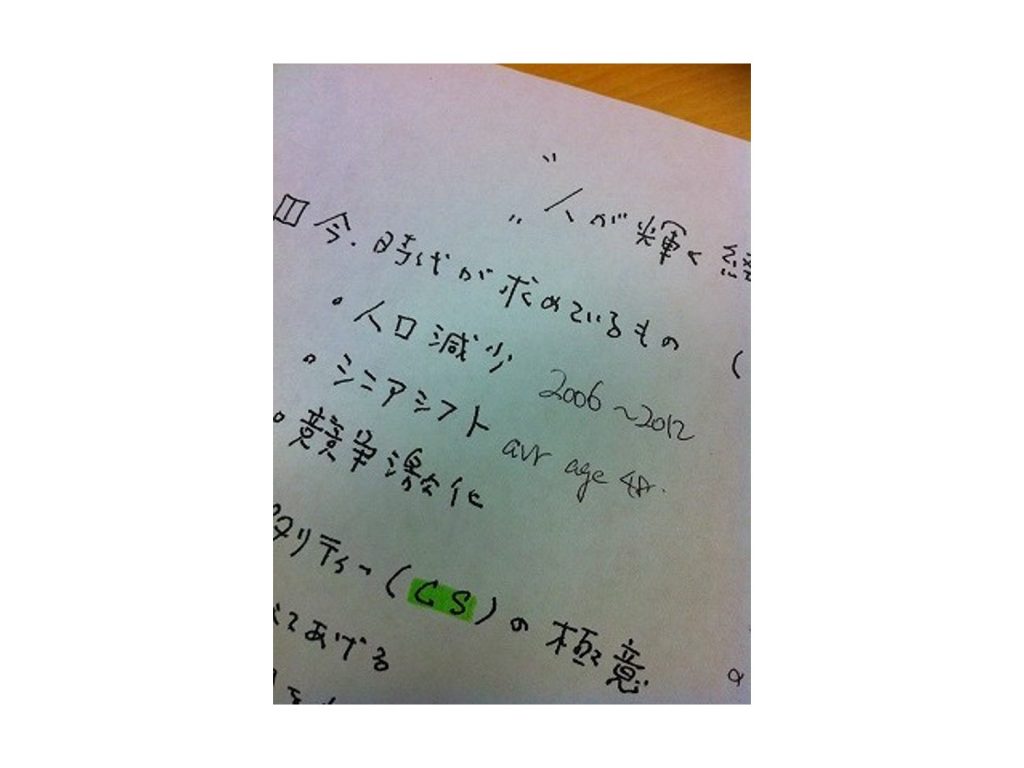 〃人が輝く経
□ 今、時代が求めているもの (
• 人口減少 2006~2012
• シニアシフト avr age 48.
• 競争激化
タリティー(CS)の極意
てあげる